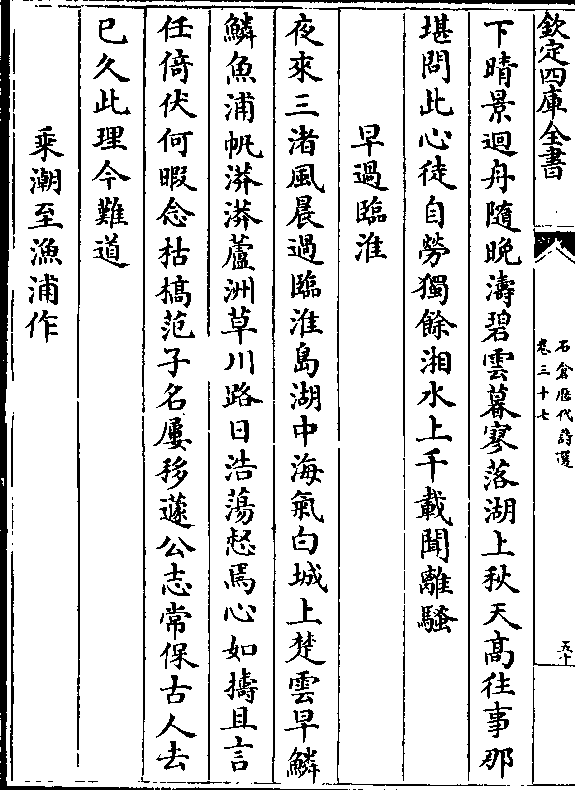 欽定四庫全書
石倉歴代詩選
卷三十七
五十
下晴景迴舟隨晚濤碧雲暮寥落湖上秋天髙往事那
堪問此心徒自勞獨餘湘水上千載聞離騷
早過臨淮
夜來三渚風晨過臨淮島湖中海氣白城上楚雲早鱗
鱗魚浦帆漭漭蘆洲草川路日浩蕩惄焉心如擣且言
任倚伏何暇念枯槁范子名屢移蘧公志常保古人去
已久此理今難道
乘潮至漁浦作